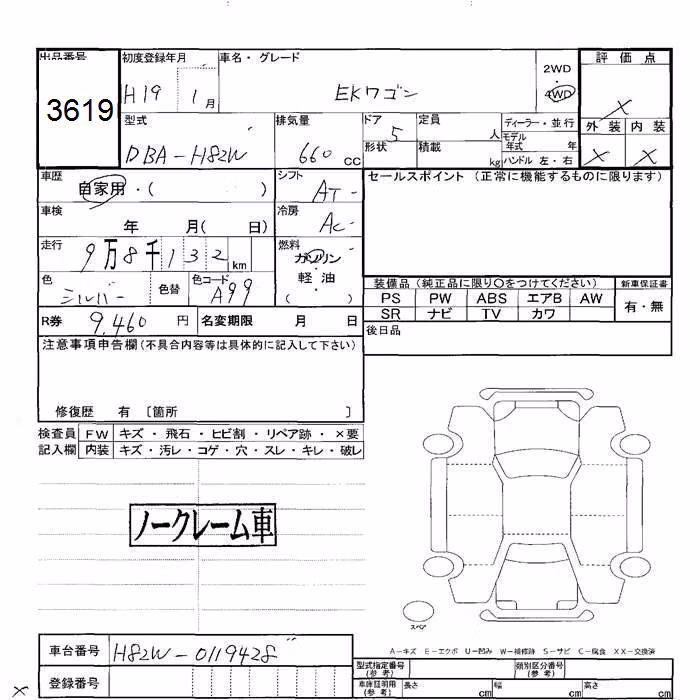 出品番号 初度登録年月 車名・グレード 評価点
3619 H19 1月 EKワゴン 2WD・4WD X
型式 排気量 ドア 定員 ディーラー・並行 外装 内装
DBA-H82W 660cc 5 人 モデル年式 年 X X
形状 積載 kg ハンドル 左・右
車歴 シフト セールスポイント (正常に機能するものに限ります)
自家用・( ) AT-
車検 冷房
年 月( 日) Ac-
走行 燃料
9万8千132km ガソリン
色 色替 色コード 軽・油
シルバー A99 ( )
装備品 (純正品に限り〇をつけてください) 新車保証書
PS PW ABS エアB AW 有・無
SR ナビ TV カワ
R券 9,460円 名変期限 月 日
後日品
注意事項申告欄 (不具合内容等は具体的に記入して下さい)
修復歴 有 〔箇所 〕
検査員 FW キズ・飛石・ヒビ割・リペア跡・×要
記入欄 内装 キズ・汚レ・コゲ・穴・スレ・キレ・破レ
ノークレーム車
スペア
A-キズ E-エクボ U-凹み W-補修跡 S-サビ C-腐食 XX-交換済
車台番号 H82W-0119428
型式指定番号 (参考) 類別区分番号 (参考)
登録番号
車庫証明用 (参考) 長さ cm 幅 cm 高さ cm
X